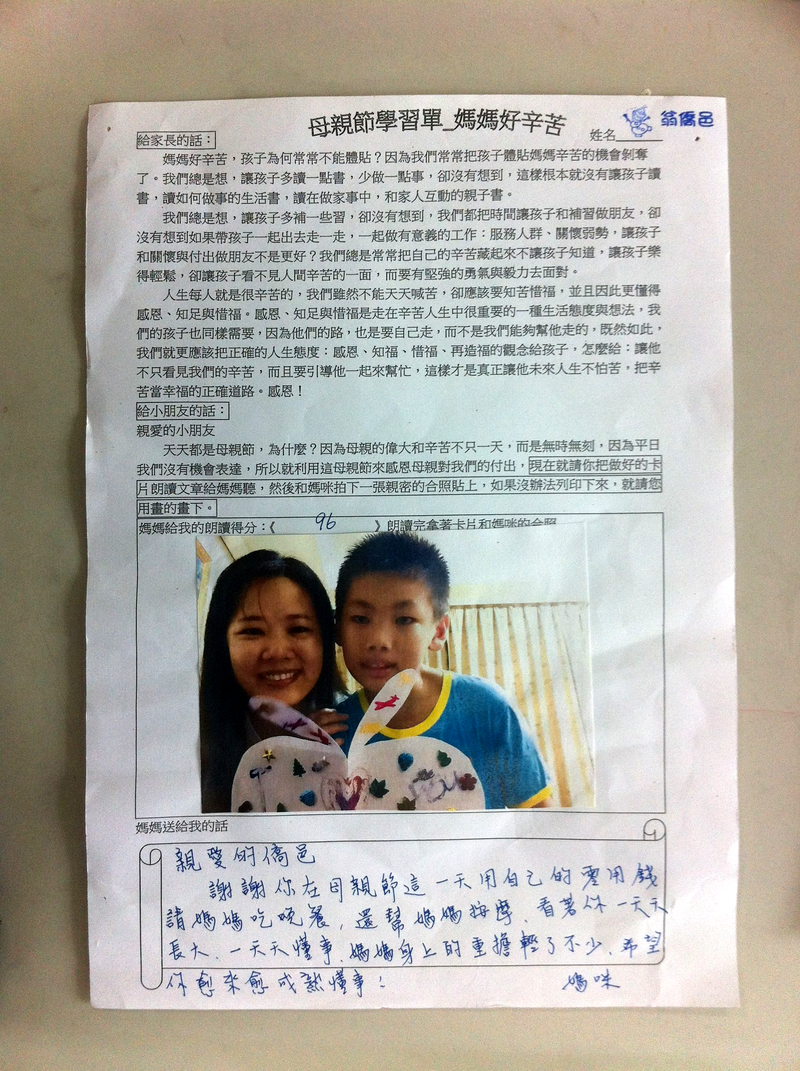 母親節學習單_媽媽好辛苦
姓名 翁僑邑
給家長的話：
媽媽好辛苦，孩子為何常常不能體貼？因為我們常常把孩子體貼媽媽辛苦的機會剝奪
了。我們總是想，讓孩子多讀一點書，少做一點事，卻沒有想到，這樣根本就沒有讓孩子讀
書，讀如何做事的生活書，讀在做家事中，和家人互動的親子書。
我們總是想，讓孩子多補一些習，卻沒有想到，我們都把時間讓孩子和補習做朋友，卻
沒有想到如果帶孩子一起出去走一走，一起做有意義的工作：服務人群、關懷弱勢，讓孩子
和關懷與付出做朋友不是更好？我們總是常常把自己的辛苦藏起來不讓孩子知道，讓孩子樂
得輕鬆，卻讓孩子看不見人間辛苦的一面，而要有堅強的勇氣與毅力去面對。
人生每人就是很辛苦的，我們雖然不能天天喊苦，卻應該要知苦惜福，並且因此更懂得
感恩、知足與惜福。感恩、知足與惜福是走在辛苦人生中很重要的一種生活態度與想法，我
們的孩子也同樣需要，因為他們的路，也是要自己走，而不是我們能夠幫他走的，既然如此，
我們就更應該把正確的人生態度：感恩、知福、惜福、再造福的觀念給孩子，怎麼給：讓他
不只看見我們的辛苦，而且要引導他一起來幫忙，這樣才是真正讓他未來人生不怕苦，把辛
苦當幸福的正確道路。感恩！
給小朋友的話：
親愛的小朋友
天天都是母親節，為什麼？因為母親的偉大和辛苦不只一天，而是無時無刻，因為平日
我們沒有機會表達，所以就利用這母親節來感恩母親對我們的付出，現在就請你把做好的卡
片朗讀文章給媽媽聽，然後和媽咪拍下一張親密的合照貼上，如果沒辦法列印下來，就請您
用畫的畫下。
媽媽給我的朗讀得分：《 96 》朗讀完拿著卡片和媽咪的合照
媽媽送給我的話
親愛的僑邑
謝謝你在母親節這一天用自己的零用錢
請媽媽吃晚餐，還幫媽媽按摩，看著你一天天
長大、一天天懂事、媽媽身上的重擔輕了不少、希望
你愈來愈成熟懂事！ 媽咪